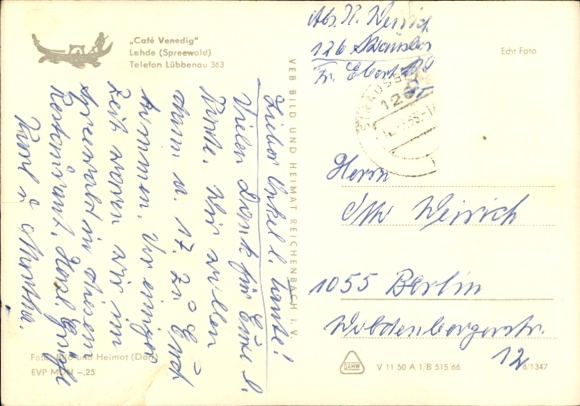 „Café Venedig"
Lehde (Spreewald)
Telefon Lübbenau 363
Lieber Onkel l. Tante!
Vielen Dank für Eure l.
Karte. Wir wollen
dann a. 17. zu Euch
kommen. Vor einiger
Zeit waren wir im
Spreewald in diesem
Restaurant. Herzl. Grüße
Karl u. Martha.
VEB BILD UND HEIMAT REICHENBACH i. V.
Foto: Bild und Heimat
EVP MDN –,25
Abs. K. Weirich
126 Strausberg
Fr. Ebert
Echt Foto
Herrn
Otto Weirich
1055 Berlin
12
V 11 50 A 1/B 515 66
6/1347